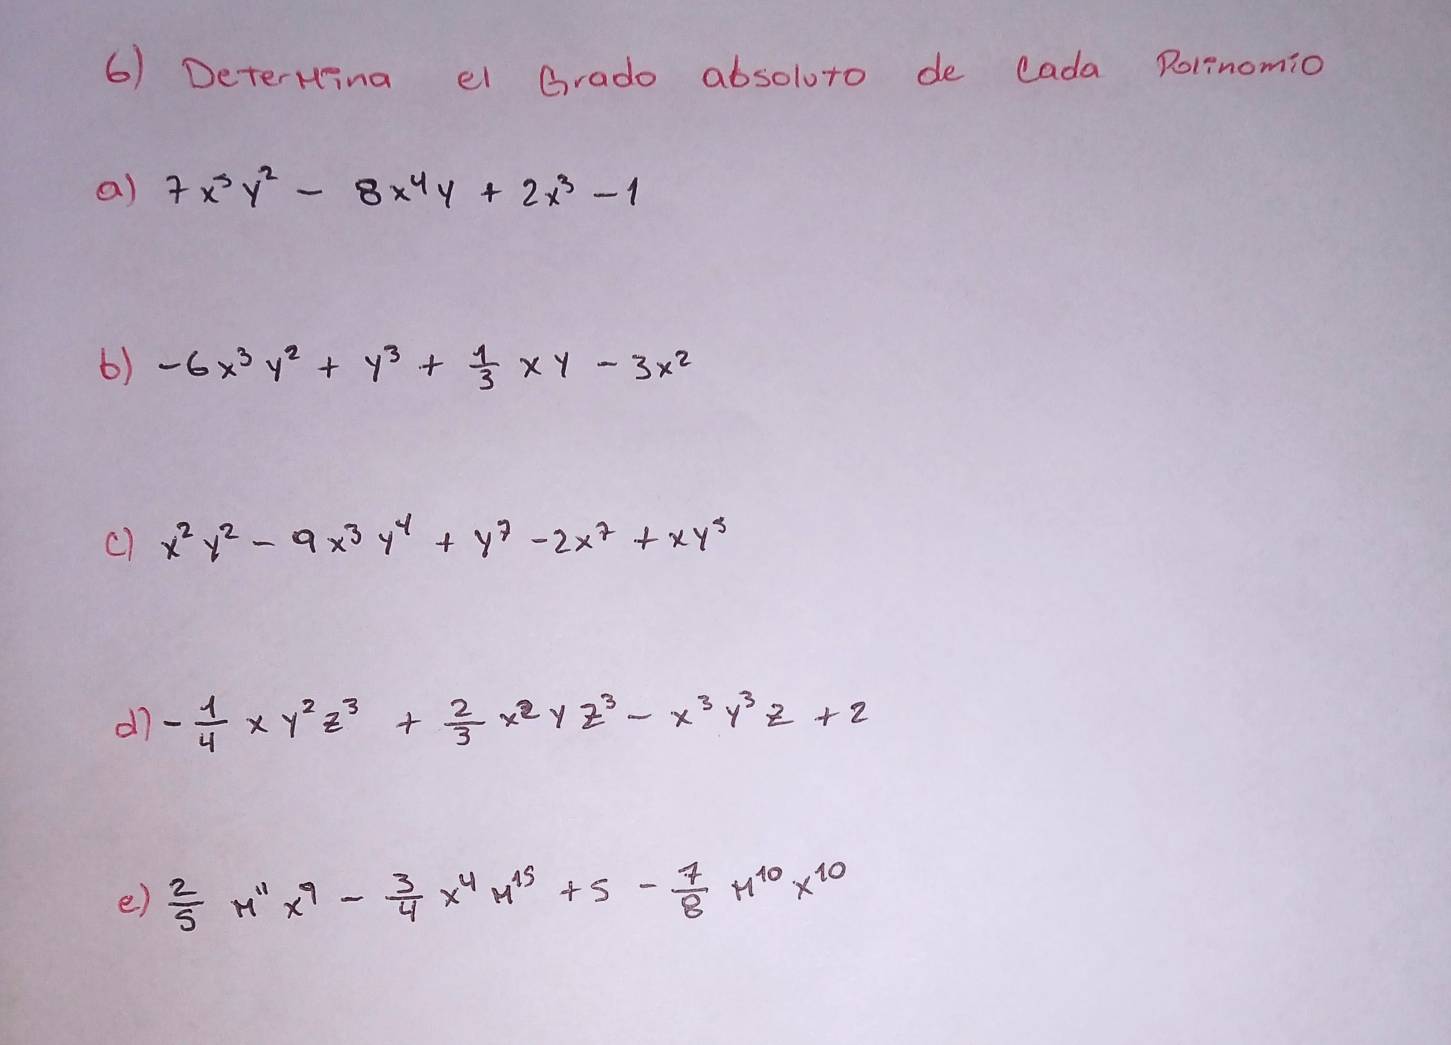 6) Determina el Grado absoluto de Cada Polinomio
a) 7x⁵y² - 8x⁴y + 2x³ - 1
b) -6x³y² + y³ + 1/3 xy - 3x²
c) x²y² - 9x³y⁴ + y⁷ - 2x⁷ + xy⁵
d) - 1/4 xy²z³ + 2/3 x²yz³ - x³y³z + 2
e) 2/5 M¹¹x⁹ - 3/4 x⁴M¹⁵ + 5 - 7/8 M¹⁰x¹⁰